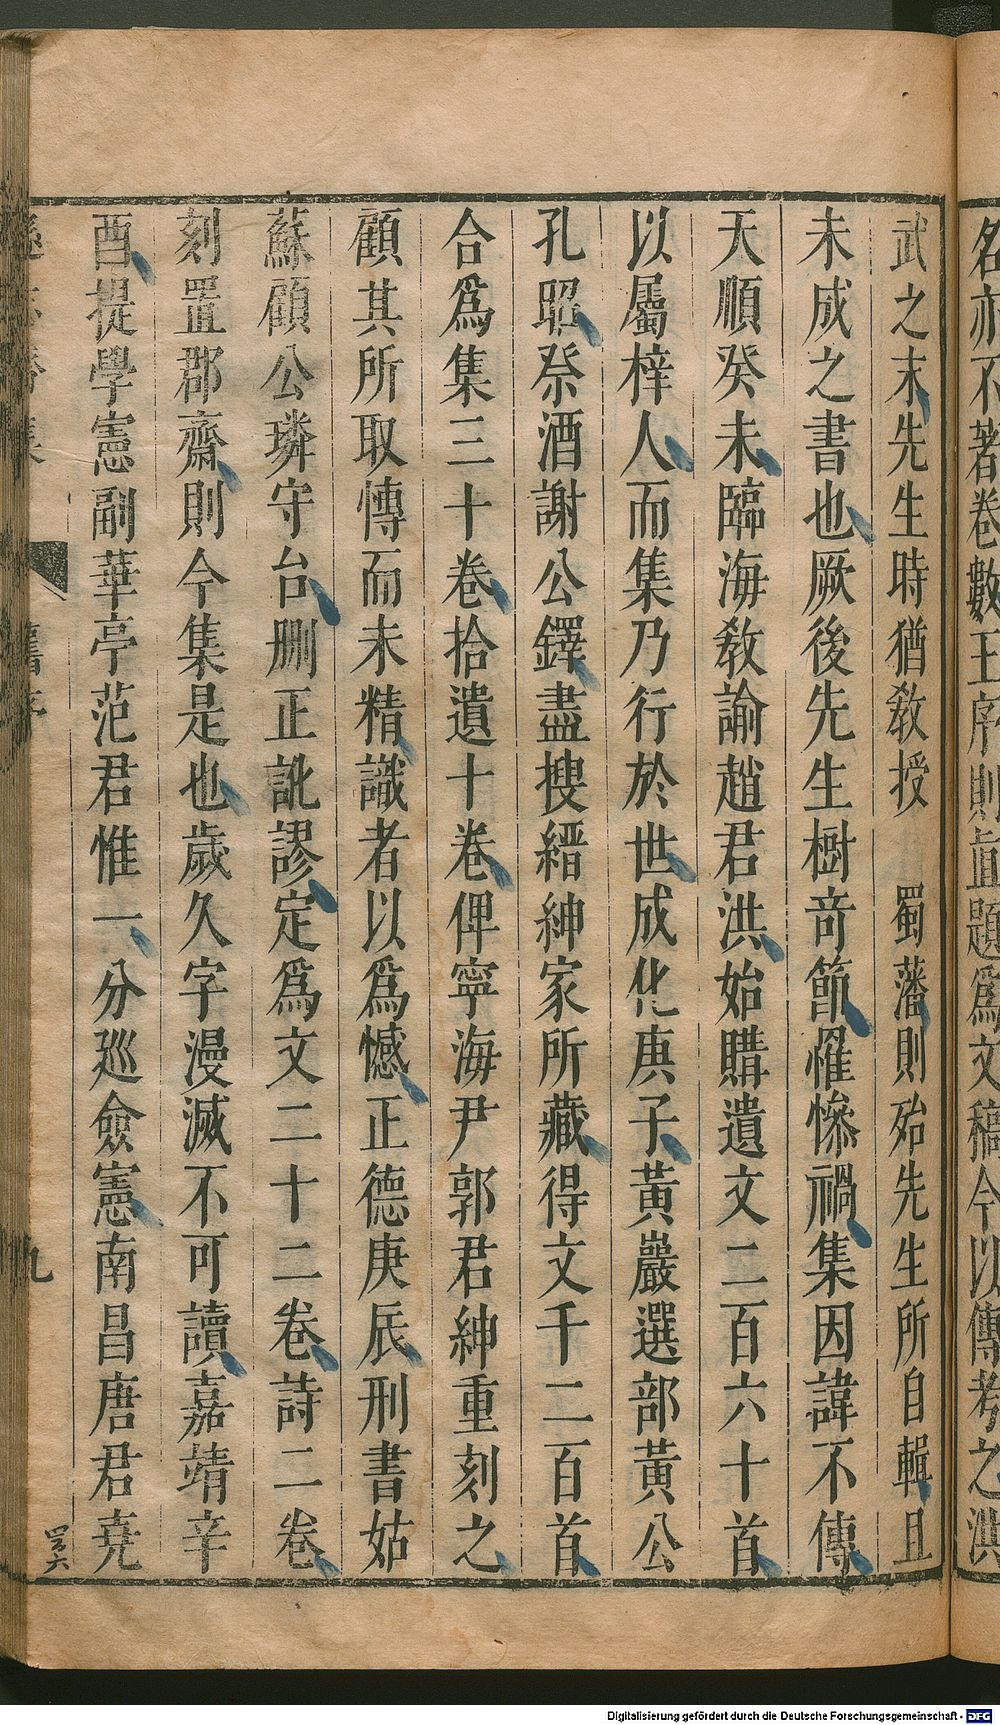 名亦不著卷數王序則直題爲文稿今以傳考之洪
武之末先生時猶敎授 蜀藩則殆先生所自輯且
未成之書也厥後先生樹奇節罹慘禍集因諱不傳
天順癸未臨海敎諭趙君洪始購遺文二百六十首
以屬梓人而集乃行於世成化庚子黃巖選部黃公
孔昭祭酒謝公鐸盡搜縉紳家所藏得文千二百首
合爲集三十卷拾遺十卷俾寧海尹郭君紳重刻之
顧其所取慱而未精識者以爲憾正德庚辰刑書姑
蘇顧公璘守台删正訛謬定爲文二十二卷詩二卷
刻置郡齋則今集是也歲久字漫滅不可讀嘉靖辛
酉提學憲副華亭范君惟一分廵僉憲南昌唐君堯
遜志齋集 舊序 九
Digitalisierung gefördert durch die Deutsche Forschungsgemeinschaft - DFG